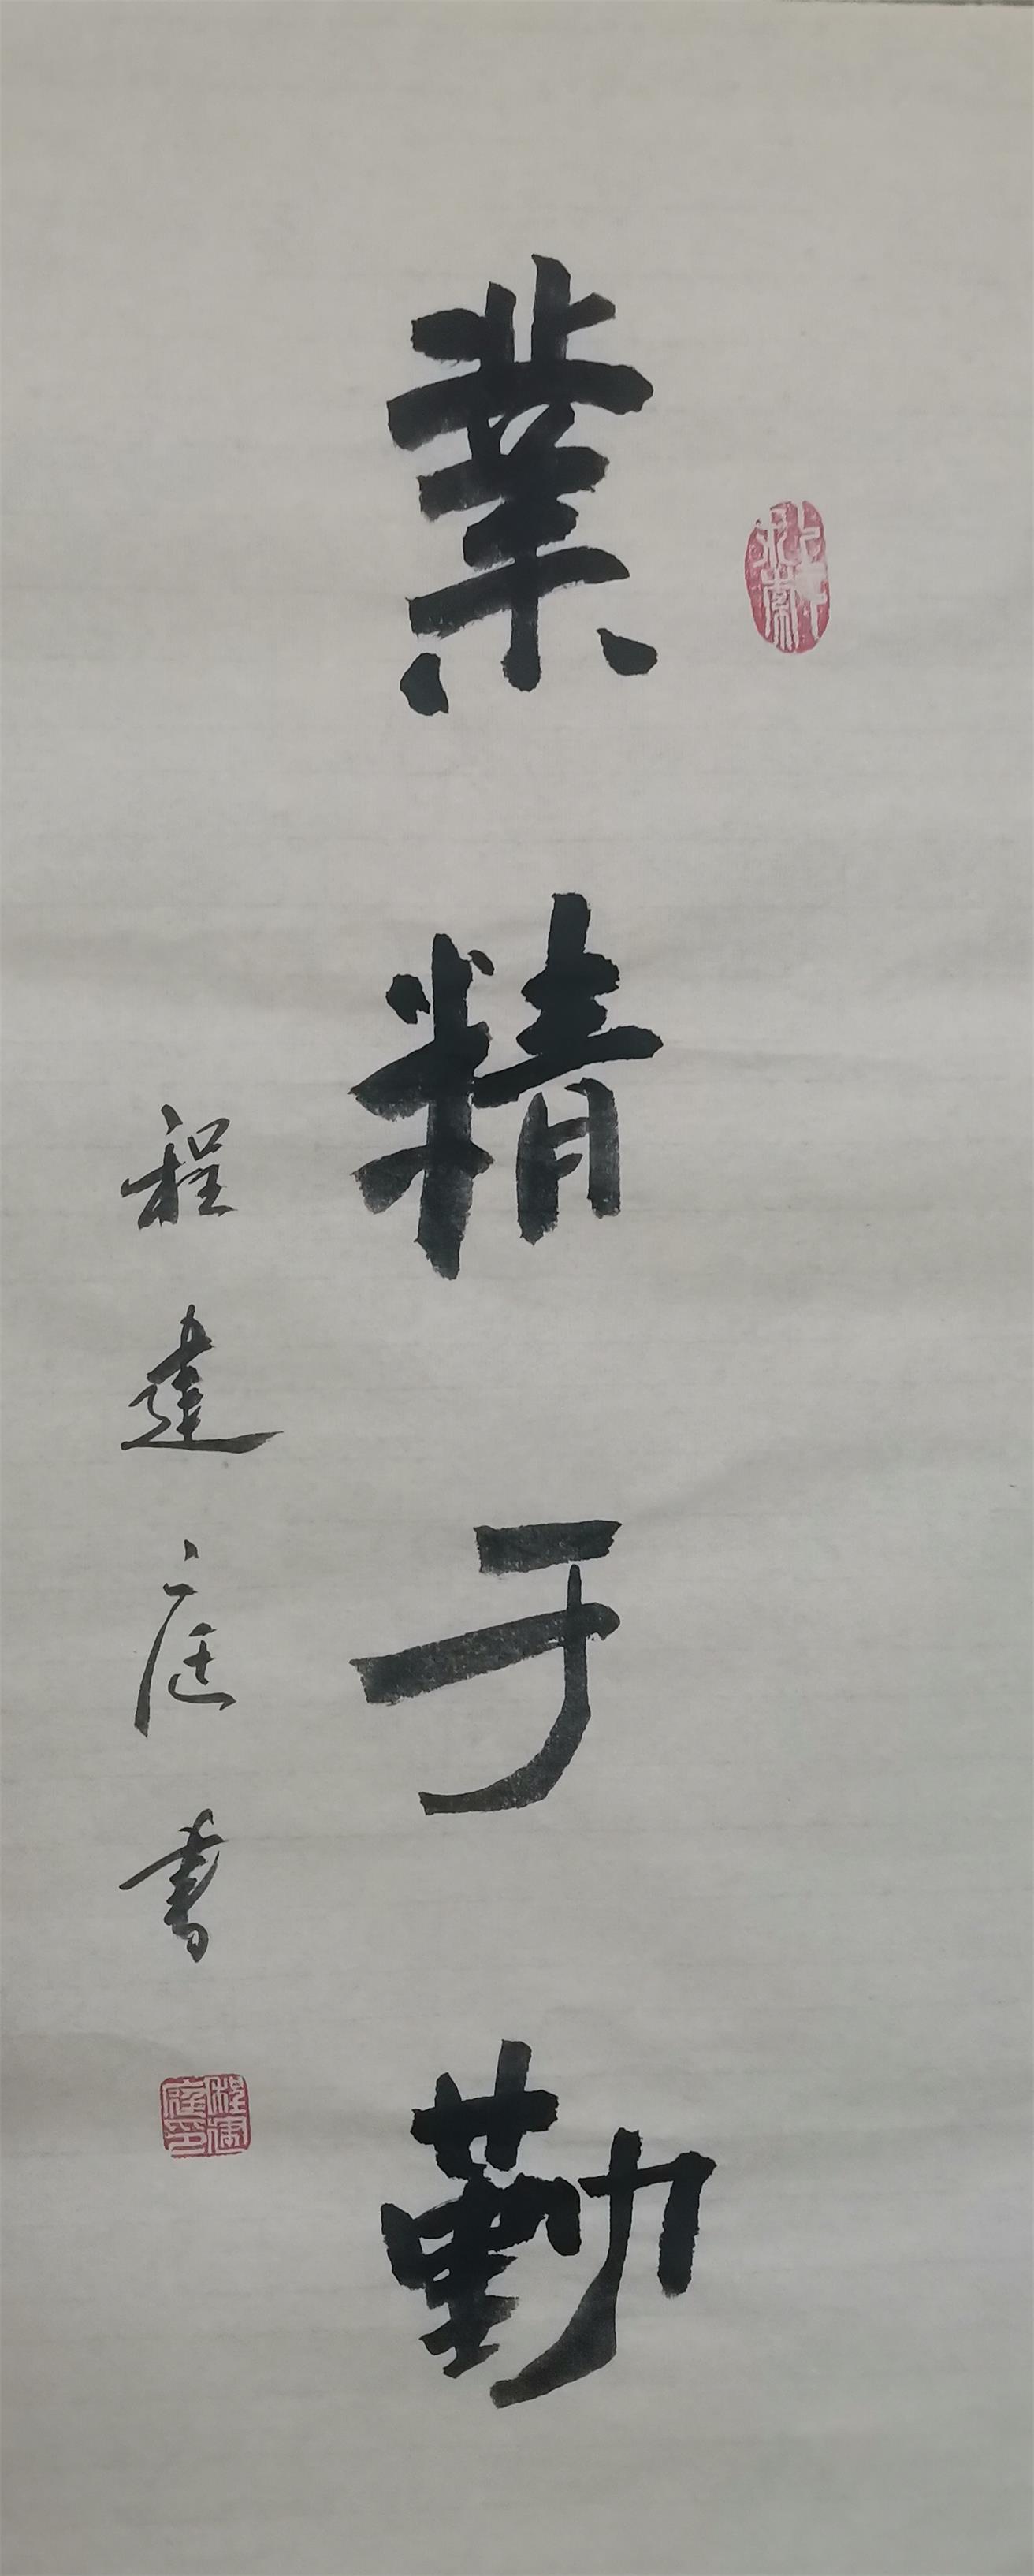 業精于勤
程建庭書